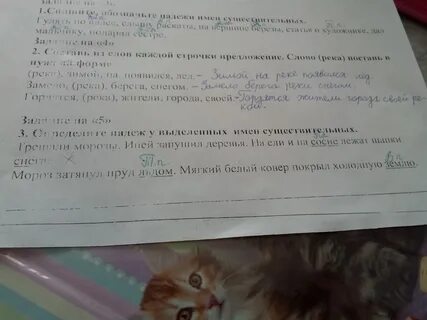 Задание на «3».
1.Спишите, обозначьте падежи имен существительных.
Гулять по аллее, слышать раскаты, на вершине березы, статья о художнике, дал
малышу, подарил сестре.
Задание на «4»
2. Составь из слов каждой строчки предложение. Слово (река) поставь в
нужной форме
(река), зимой, на, появился, лед. - Зимой на реке появился лёд.
Замело, (река), берега, снегом. - Замело берега реки снегом.
Гордятся, (река), жители, города, своей - Гордятся жители города своей ре
кой.
Задание на «5»
П.п
3. Определите падеж у выделенных имен существительных.
Грянули морозы. Иней запушил деревья. На ели и на сосне лежат шапки
снега. Т.п. В.п
Мороз затянул пруд льдом. Мягкий белый ковер покрыл холодную землю.